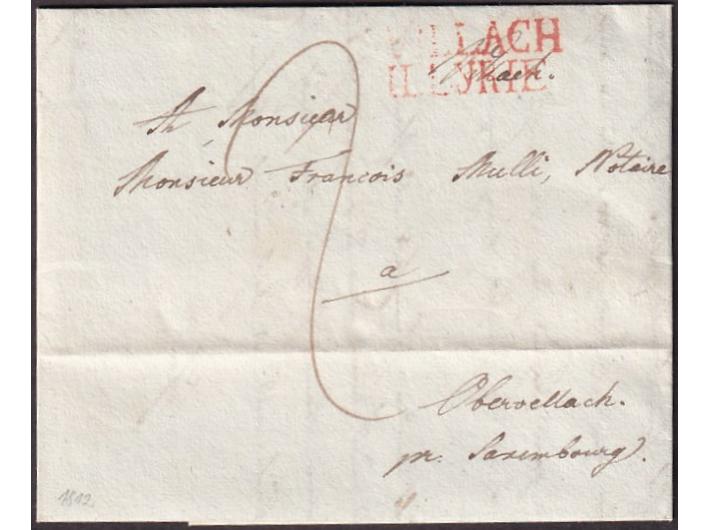 VILLACH
ILLYRIE
A Monsieur
Monsieur Francois Mulli, Notaire
a
Obervellach.
pr. Saxembourg.
1812.